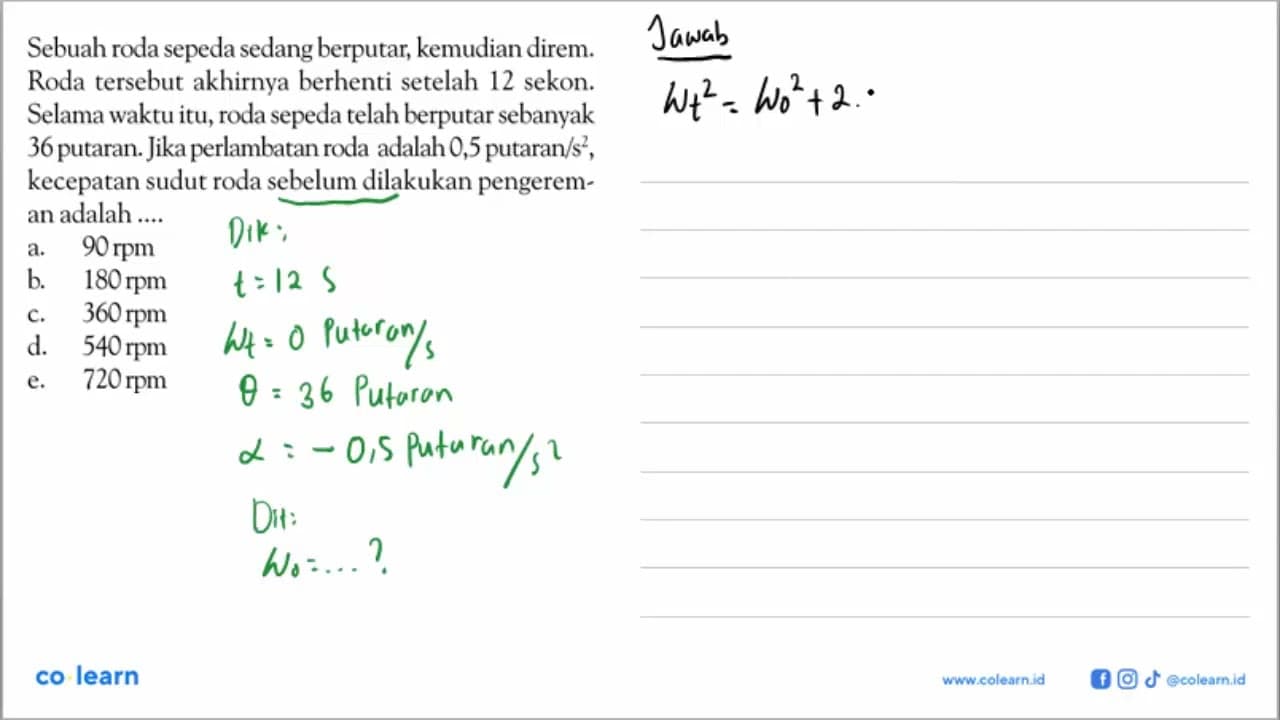 Sebuah roda sepeda sedang berputar, kemudian direm.
Roda tersebut akhirnya berhenti setelah 12 sekon.
Selama waktu itu, roda sepeda telah berputar sebanyak
36 putaran. Jika perlambatan roda adalah 0,5 putaran/s²,
kecepatan sudut roda sebelum dilakukan pengerem-
an adalah ....
a. 90 rpm
b. 180 rpm
c. 360 rpm
d. 540 rpm
e. 720 rpm
Dik:
t = 12 s
Wt = 0 Putaran/s
θ = 36 Putaran
α = - 0,5 Putaran/s²
Dit:
W₀ = .... ?
Jawab
Wt² = W₀² + 2 .
co learn
www.colearn.id
@colearn.id